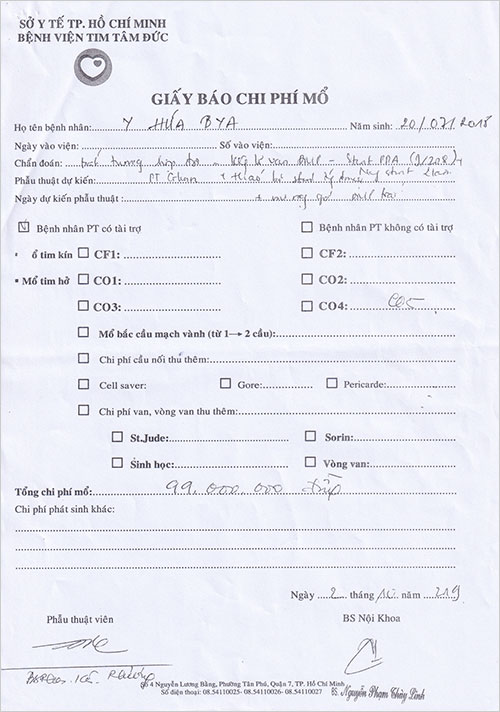 SỞ Y TẾ TP. HỒ CHÍ MINH
BỆNH VIỆN TIM TÂM ĐỨC
GIẤY BÁO CHI PHÍ MỔ
Họ tên bệnh nhân: Y HỨA BYA Năm sinh: 20/07/2018
Ngày vào viện: Số vào viện:
Chẩn đoán:
Phẫu thuật dự kiến: PT
Ngày dự kiến phẫu thuật:
Bệnh nhân PT có tài trợ Bệnh nhân PT không có tài trợ
ổ tim kín CF1: CF2:
Mổ tim hở CO1: CO2:
CO3: CO4: CO5
Mổ bắc cầu mạch vành (từ 1→ 2 cầu):
Chi phí cầu nối thứ thêm:
Cell saver: Gore: Pericarde:
Chi phí van, vòng van thu thêm:
St.Jude: Sorin:
Sinh học: Vòng van:
Tổng chi phí mổ: 99.000.000
Chi phí phát sinh khác:
Ngày 2 tháng 10 năm 219
Phẫu thuật viên BS Nội Khoa
Số 4 Nguyễn Lương Bằng, Phường Tân Phú, Quận 7, TP. Hồ Chí Minh
Số điện thoại: 08.54110025- 08.54110026- 08.54110027
BS. Nguyễn Phạm Thùy Linh